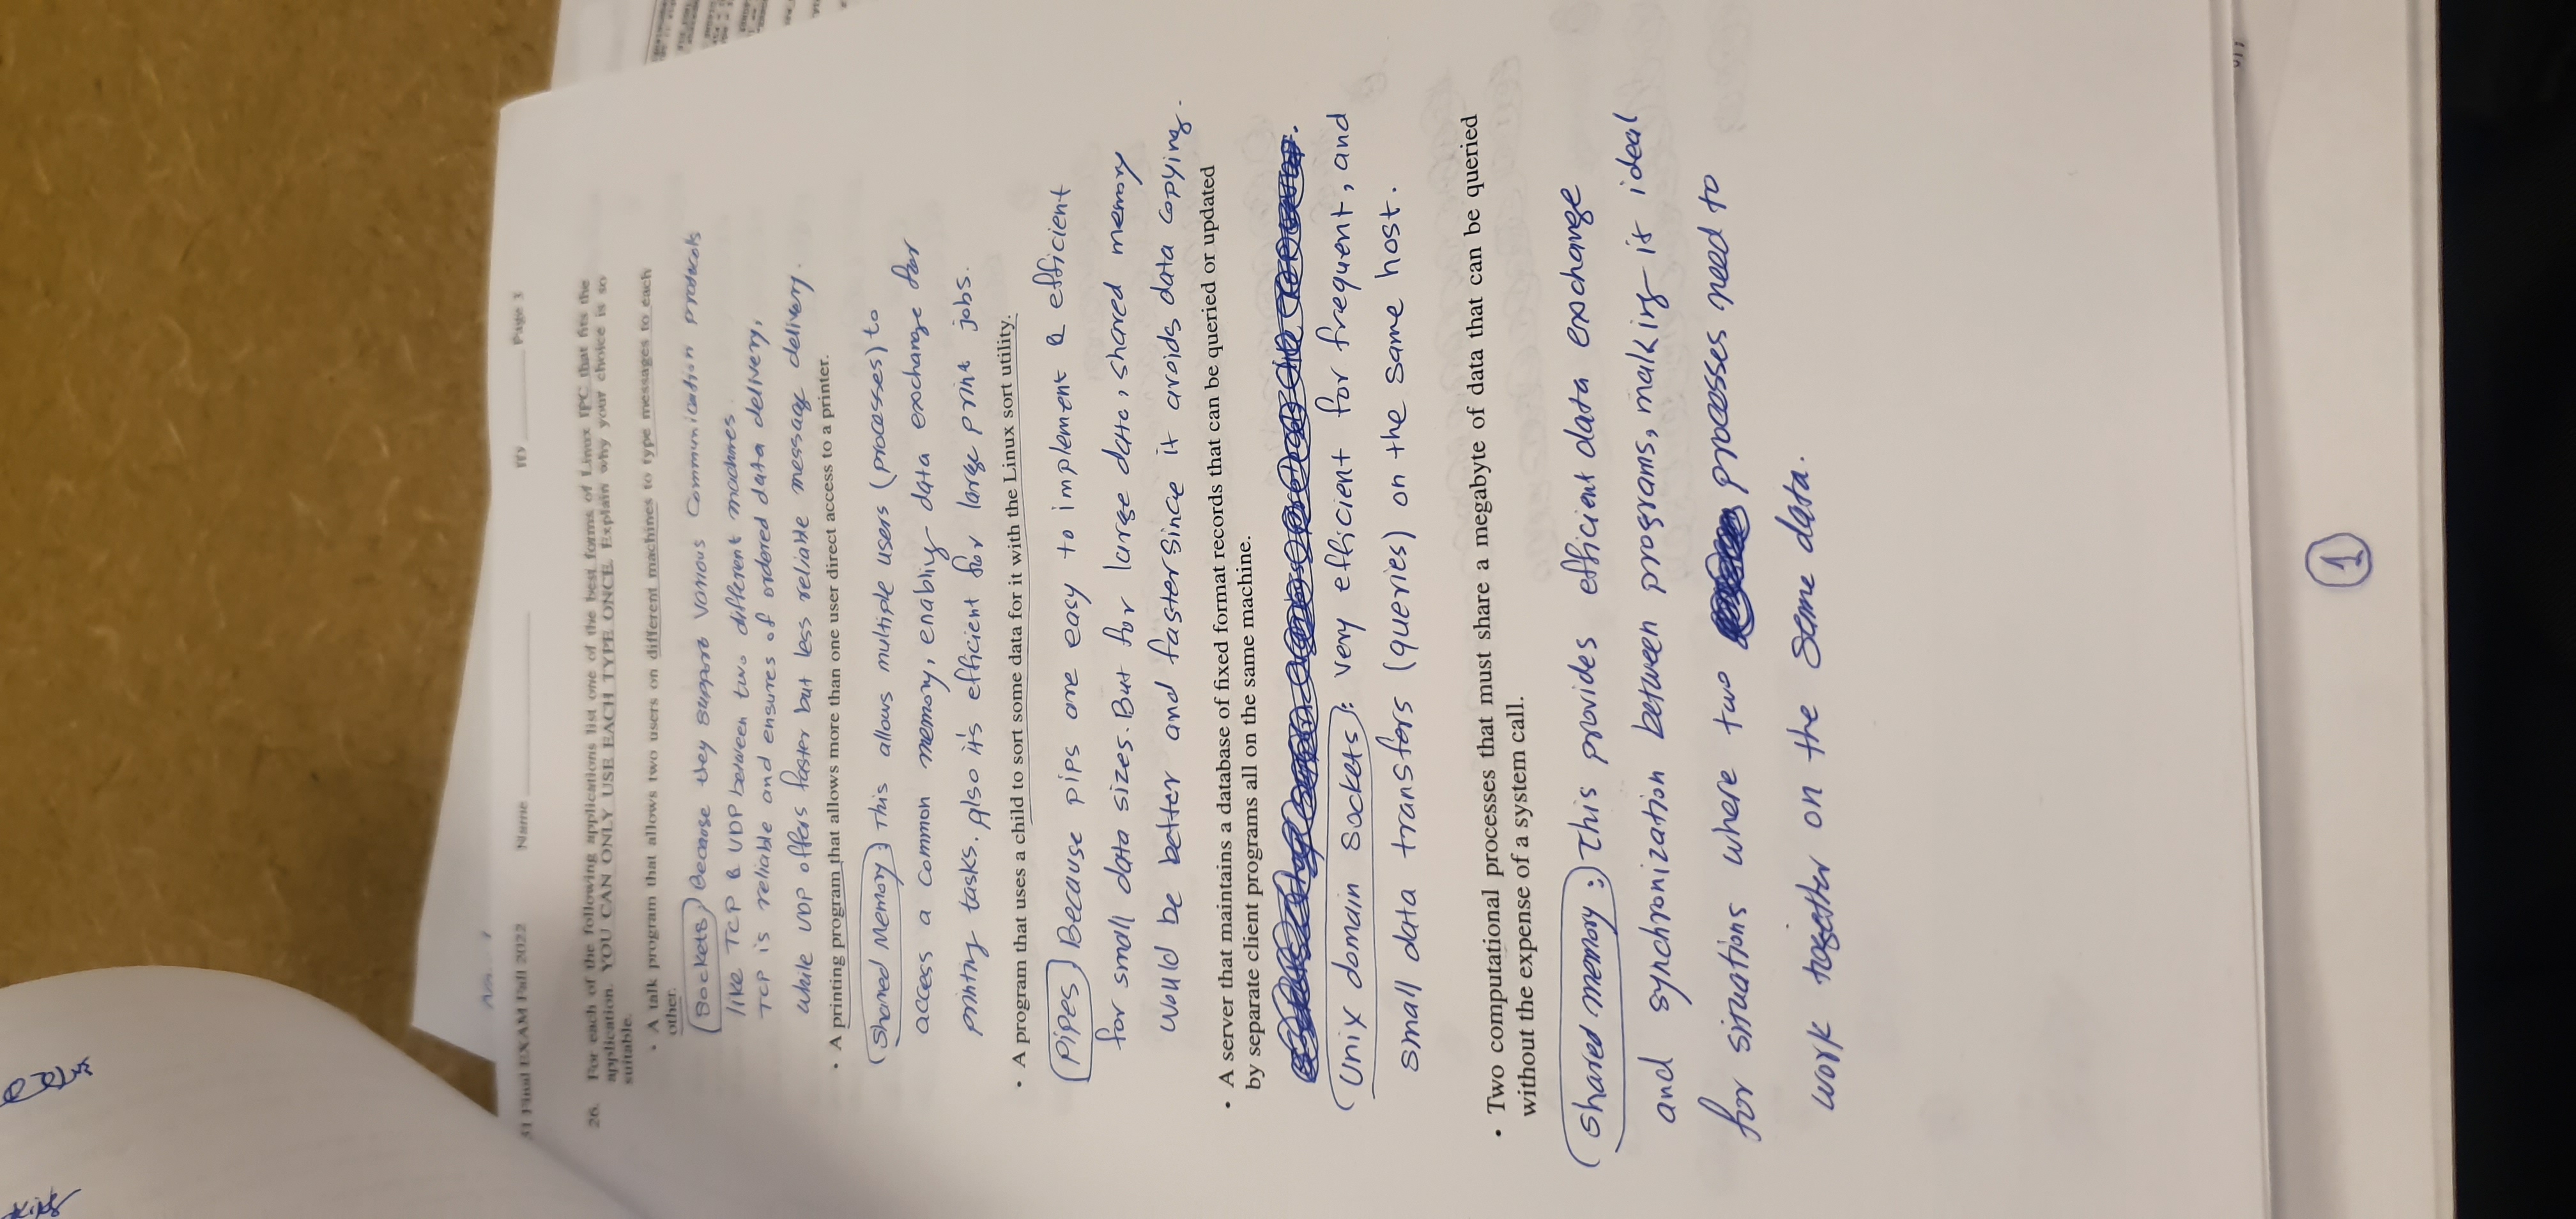 31 Final EXAM Fall 2022 Name ID Page 3
26. For each of the following applications list one of the best forms of Linux IPC that fits the
application. YOU CAN ONLY USE EACH TYPE ONCE. Explain why your choice is so
suitable.
• A talk program that allows two users on different machines to type messages to each
other.
Sockets: Because they support various Communication protocols
like TCP & UDP between two different machines
TCP is reliable and ensures of ordered data delivery,
while UDP offers faster but less reliable message delivery.
• A printing program that allows more than one user direct access to a printer.
Shared Memory: This allows multiple users (processes) to
access a common memory, enabling data exchange for
printing tasks. Also it's efficient for large print jobs.
• A program that uses a child to sort some data for it with the Linux sort utility.
Pipes) Because pips are easy to implement & efficient
for small data sizes. But for large data, shared memory
would be better and faster since it avoids data copying.
• A server that maintains a database of fixed format records that can be queried or updated
by separate client programs all on the same machine.
Unix domain Sockets: very efficient for frequent, and
small data transfers (queries) on the same host.
• Two computational processes that must share a megabyte of data that can be queried
without the expense of a system call.
Shared memory:) This provides efficient data exchange
and synchronization between programs, making it ideal
for situations where two processes need to
work together on the same data.
1